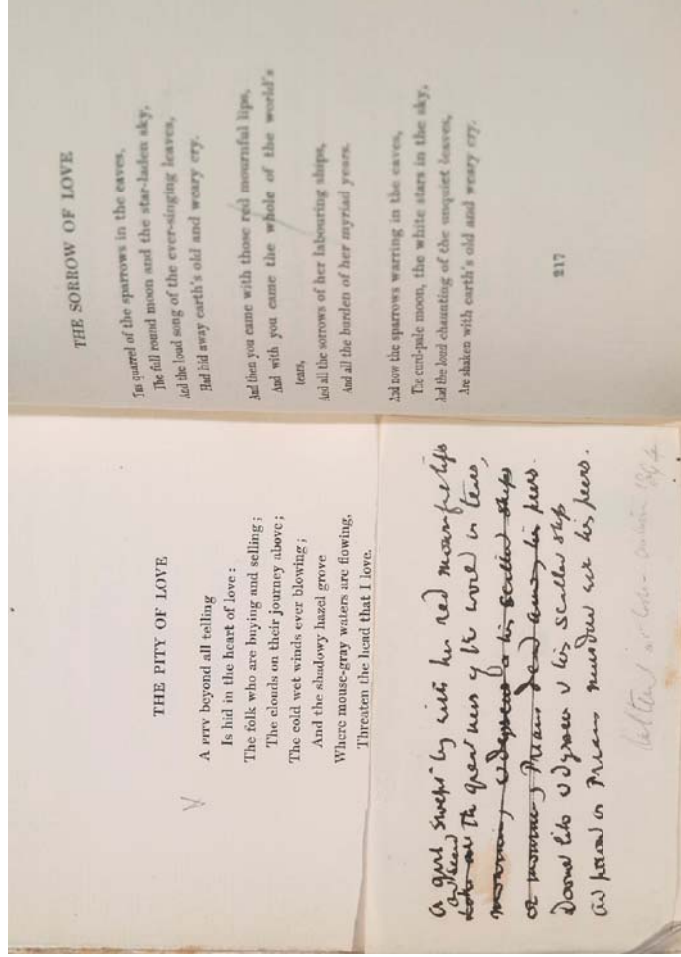 THE PITY OF LOVE
A PITY beyond all telling
Is hid in the heart of love:
The folk who are buying and selling;
The clouds on their journey above;
The cold wet winds ever blowing;
And the shadowy hazel grove
Where mouse-gray waters are flowing,
Threaten the head that I love.
a girl swept by with her red mournful lips
and
the greatness of the world in tears,
Doomed like Odysseus & his
and proud as Priam murdered with his peers.
THE SORROW OF LOVE
THE quarrel of the sparrows in the eaves,
The full round moon and the star-laden sky,
And the loud song of the ever-singing leaves,
Had hid away earth's old and weary cry.
And then you came with those red mournful lips,
And with you came the whole of the world's
tears,
And all the sorrows of her labouring ships,
And all the burden of her myriad years.
And now the sparrows warring in the eaves,
The curd-pale moon, the white stars in the sky,
And the loud chaunting of the unquiet leaves,
Are shaken with earth's old and weary cry.
217